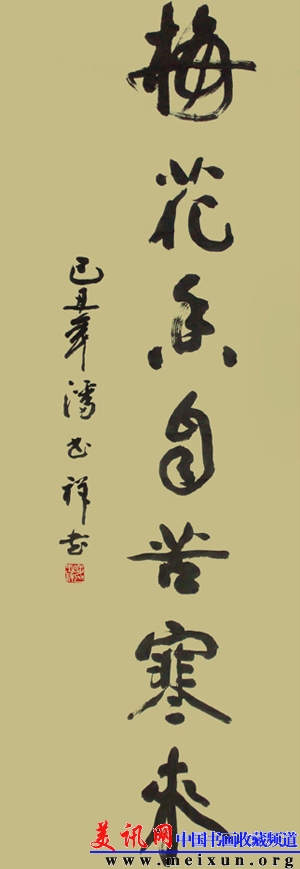 梅花香自苦寒来
己丑年潘书祥书
美讯网 中国书画收藏频道
www.meixun.org